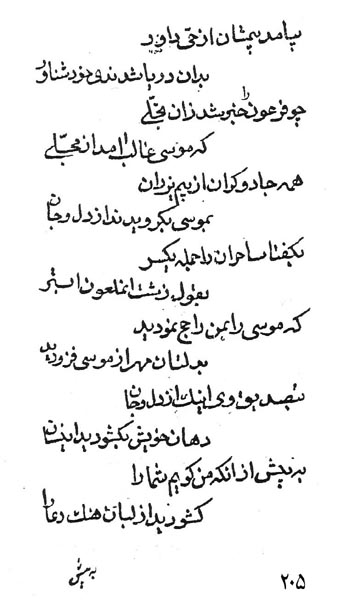 بیامد پیششان از حی داور
بدان دریا شدندی خود شناور
چو فرعون را خبر شد زان مجلی
که موسی غالب آمد آن مجلی
همه جادوکران از بیم یزدان
بموسی بکرویدند از دل و جان
بکفتا ساحران را جمله یکسر
بقول زشت آن ملعون ابتر
که موسی را بمن راجح نمودید
بدلتان مهر از موسی فزودید
بتصدیق وی اینک از دل و جان
دهان خویش بکشودید اینسان
به پیش از آنکه من کویم شما را
کشودید از لبان
به پیش
۲۰۵